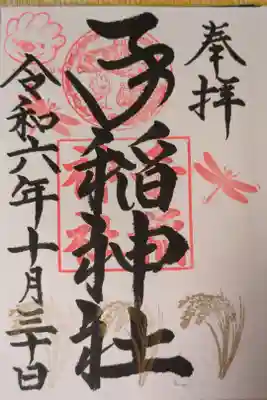 奉拝
子稲神社
令和六年十月三十日